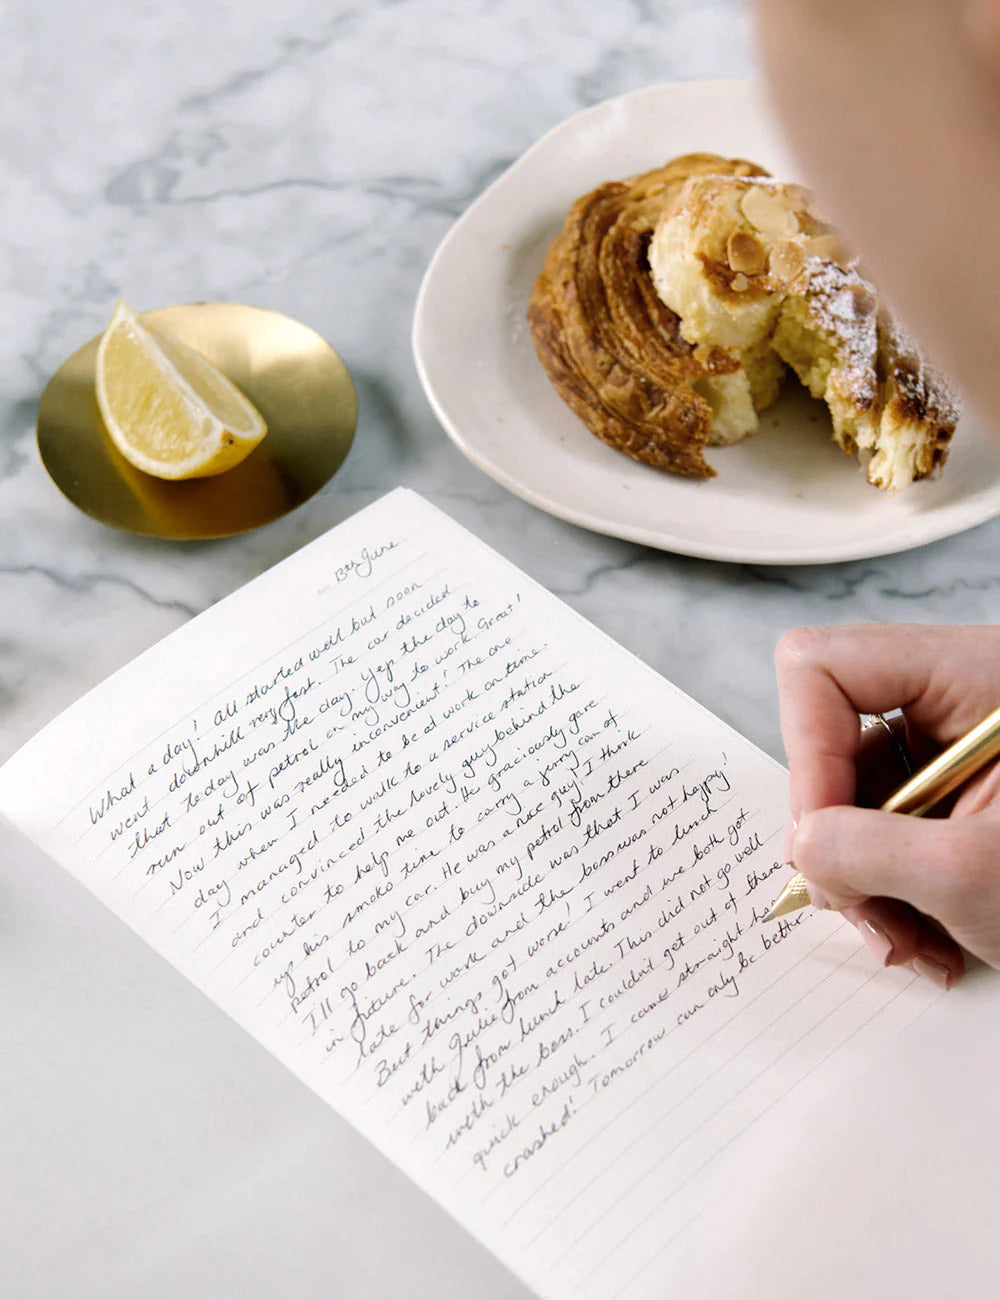 13th June
What a day! All started well but soon
went downhill very fast. The car decided
that today was the day. Yep the day to
run out of petrol on my way to work. Great!
Now this was really inconvenient! The one
day when I needed to be at work on time.
I managed to walk to a service station
and convinced the lovely guy behind the
counter to help me out. He graciously gave
up his smoko time to carry a jerry can of
petrol to my car. He was a nice guy! I think
I'll go back and buy my petrol from there
in future. The downside was that I was
late for work and the boss was not happy!
But things got worse! I went to lunch
with Julie from accounts and we both got
back from lunch late. This did not go well
with the boss. I couldn't get out of there
quick enough. I came straight
crashed! Tomorrow can only be better.